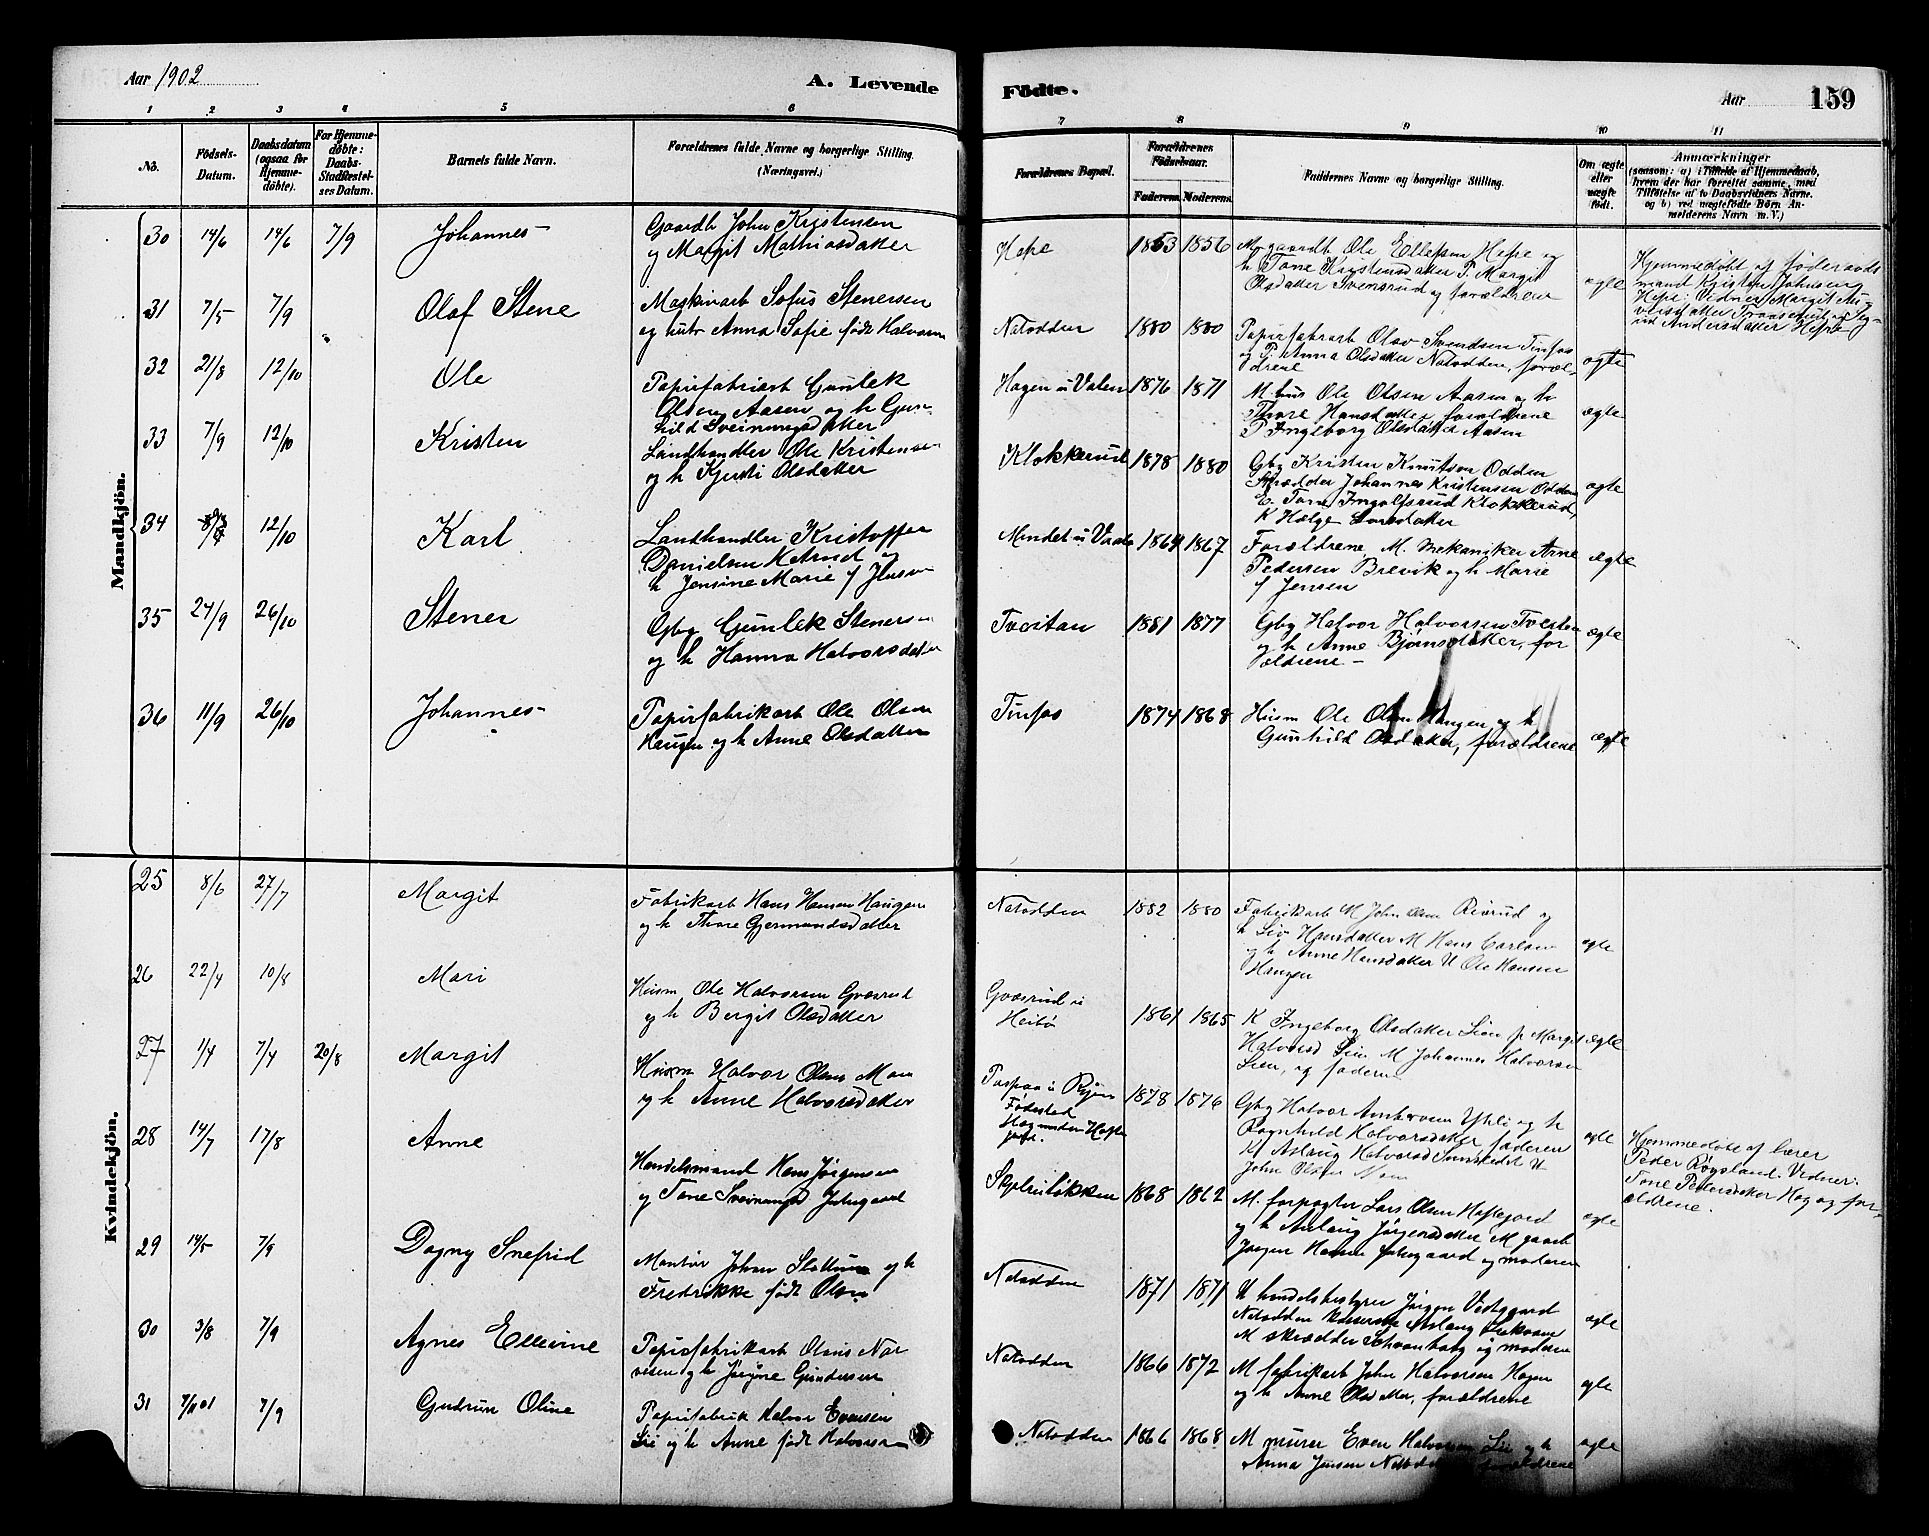 Aar 1902
A. Levende
Födte.
Aar
159
1 2 3 4 5 6
7 8 9 10 11
No.
Födsels-
Datum.
Daabsdatum
(ogsaa for
Hjemme-
döbte).
For Hjemme-
döbte:
Daabs-
Stadfæstel-
ses Datum.
Barnets fulde Navn.
Forældrenes fulde Navne og borgerlige Stilling.
(Næringsvei.)
Forældrenes Bopæl.
Forældrenes
Födselsaar.
Faderens. Moderens.
Faddernes Navne og borgerlige Stilling.
Om ægte
eller
uægte
födt.
Anmærkninger
(saasom: a) i Tilfælde af Hjemmedaab,
hvem der har forrettet samme, med
Tilföielse af to Daabsvidners Navne.
og b) ved uægtefödte Börn An-
melderens Navn m. V.)
Mandkjön.
30 14/6 14/6 7/9 Johannes
Gaardb John Kristensen
og Margit Mathiasdatter
Hefre 1853 1856
M. gaardb Ole Ellefsen Hefre og
h Tone Kristensdatter P. Margit
Olsdatter Svensrud og forældrene
ægte
Hjemmedøbt af føderaads
mand Kristen Johnsen
Hefre: Vidner Margit
31 7/5 7/9 Olaf Stene
Maskinarb Sofus Stenersen
og hustr Anna Sofie født Halvorsen
Notodden 1880 1880
Papirfabrarb Olav Svendsen Tinfos
og P. Anna Olsdatter Notodden, foræl-
drene
ægte
32 21/8 12/10 Ole
Papirfabriarb Gunlek
Olsen Aasen og h Gun-
hild Sveinungsdatter
Hagen u Valen 1876 1871
M. hus Ole Olsen Aasen og h
Thore Hansdatter forældrene
P Ingeborg Olsdatter Aasen
ægte
33 7/9 12/10 Kristen
Landhandler Ole Kristensen
og h Kjersti Olsdatter
Klokkerud 1878 1880
Gbg Kristen Knutson Odden
Skrædder Johannes Kristensen Odden
E. Tone Ingolfsrud Klokkerud,
K Helge Larsdatter
ægte
34 12/10 Karl
Landhandler Kristoffer
Danielsen
h Jensine Marie f
1864 1867
Forældrene, M. mekaniker Arne
Pedersen Brevik og h Marie
f Jensen
ægte
35 27/9 26/10 Stener
Gbg Gunlek Stenersen
og h Hanna Halvorsdatter
Tveitan 1881 1877
Gbg Halvor Halvorsen Tveitan
og h Anne Bjørnsdatter, for
ældrene
ægte
36 11/9 26/10 Johannes
Papirfabrikarb Ole Olsen
Haugen og h Anne Olsdatter
Tinfos 1874 1868
Husm Ole Olsen Haugen og h
Gunhild Olsdatter, forældrene
ægte
Kvindekjön.
25 8/6 27/7 Margit
Fabrikarb Hans Hansen Haugen
og h Thore Gjermundsdatter
Notodden 1882 1880
Fabrikarb M John Olsen og
h Liv Hansdatter M Hans Carlsen
og h Anne Hansdatter U Ole Hansen
Haugen
ægte
26 22/4 10/8 Mari
Husm Ole Halvorsen Gvaasrud
og h Bergit Olsdatter
Gvaasrud u
Heibø
1861 1865
K Ingeborg Olsdatter Lien p Margit
Halvorsd Lien M Johannes Halvorsen
Lien, og faderen
ægte
27 1/4 7/4 20/8 Margit
Husm Halvor Olsen Moen
og h Anne Halvorsdatter
Fødested
Hag under Hafte
1878 1876
Gbg Halvor og h
Ragnhild Halvorsdatter faderen
K Aslaug Halvorsd U
John Olsen
ægte
Hjemmedøbt af lærer
Peder Røysland. Vidner:
Tone Pedersdatter Hag og for-
ældrene.
28 14/7 17/8 Anne
Handelsmand Hans Jørgensen
og Tone Sveinungsd
1868 1862
M. forpagter Lars Olsen Haftegaard
og h Aslaug Jørgensdatter M gaarb
Jørgen Hansen og moderen
ægte
29 14/5 7/9 Dagny Snefrid
Montør Johan og h
Fredrikke født Olsen
Notodden 1871 1871
U handelsbestyrer Jørgen Vestgaard
Notodden Aslaug
M skrædder og moderen
ægte
30 3/8 7/9 Agnes Ellevine
Papirfabrikarb Olaus Nar
vesen og h Jørgine Gundersen
Notodden 1866 1872
M fabrikarb John Halvorsen Hagen
og h Anne Olsdatter, forældrene
ægte
31 7/9 Gudrun Oline
Papirfabrik Halvor Evensen
Lie og h Anne født Halvorsen
Notodden 1866 1868
M murer Even Halvorsen Lie og h
Anna Jensen Notodden forældrene
ægte